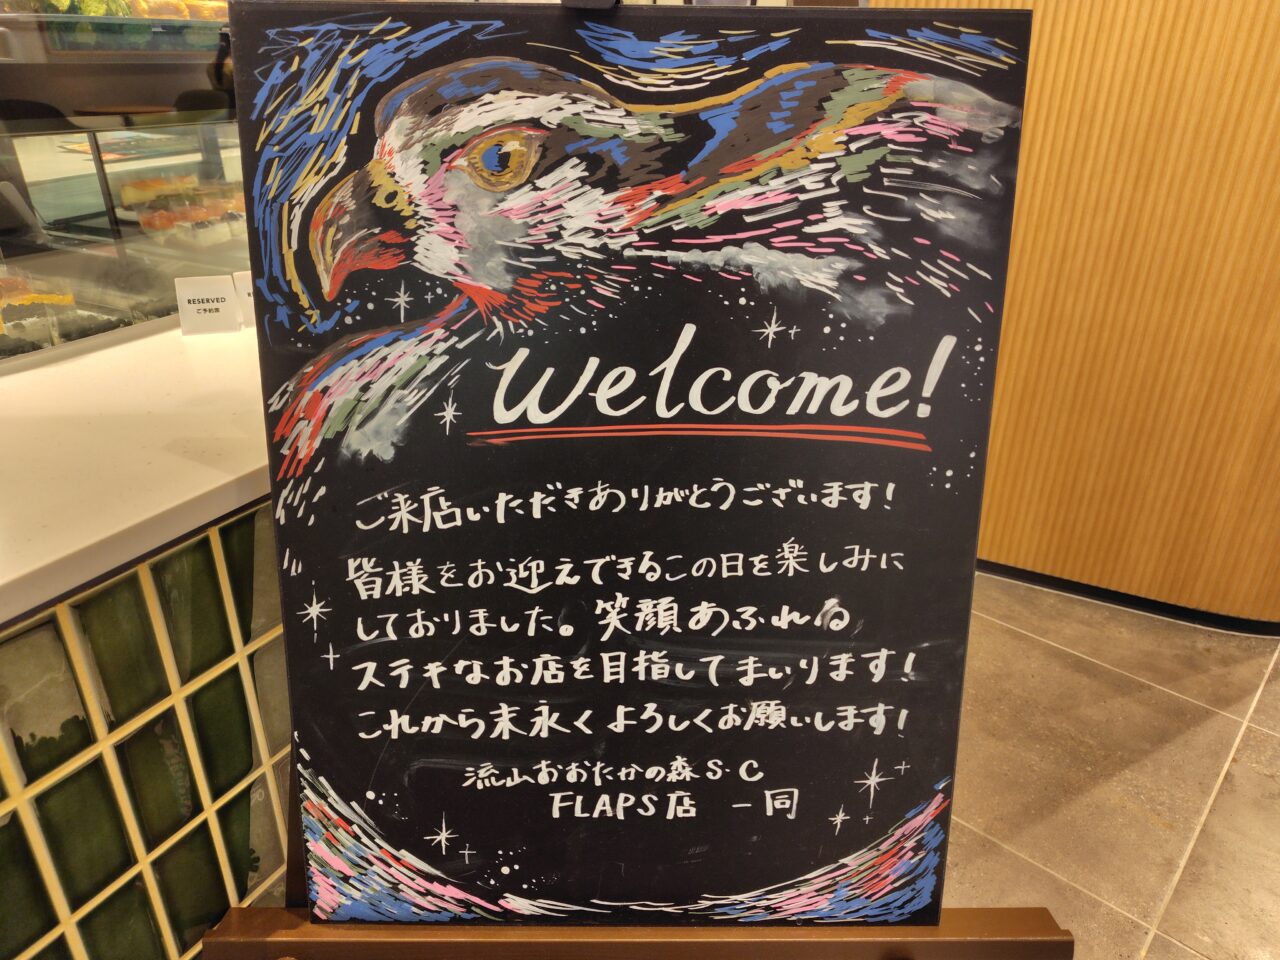 RESERVED
ご予約席
Welcome!
ご来店いただきありがとうございます!
皆様をお迎えできるこの日を楽しみに
しておりました。笑顔あふれる
ステキなお店を目指してまいります!
これから末永くよろしくお願いします!
流山おおたかの森S・C
FLAPS店 一同